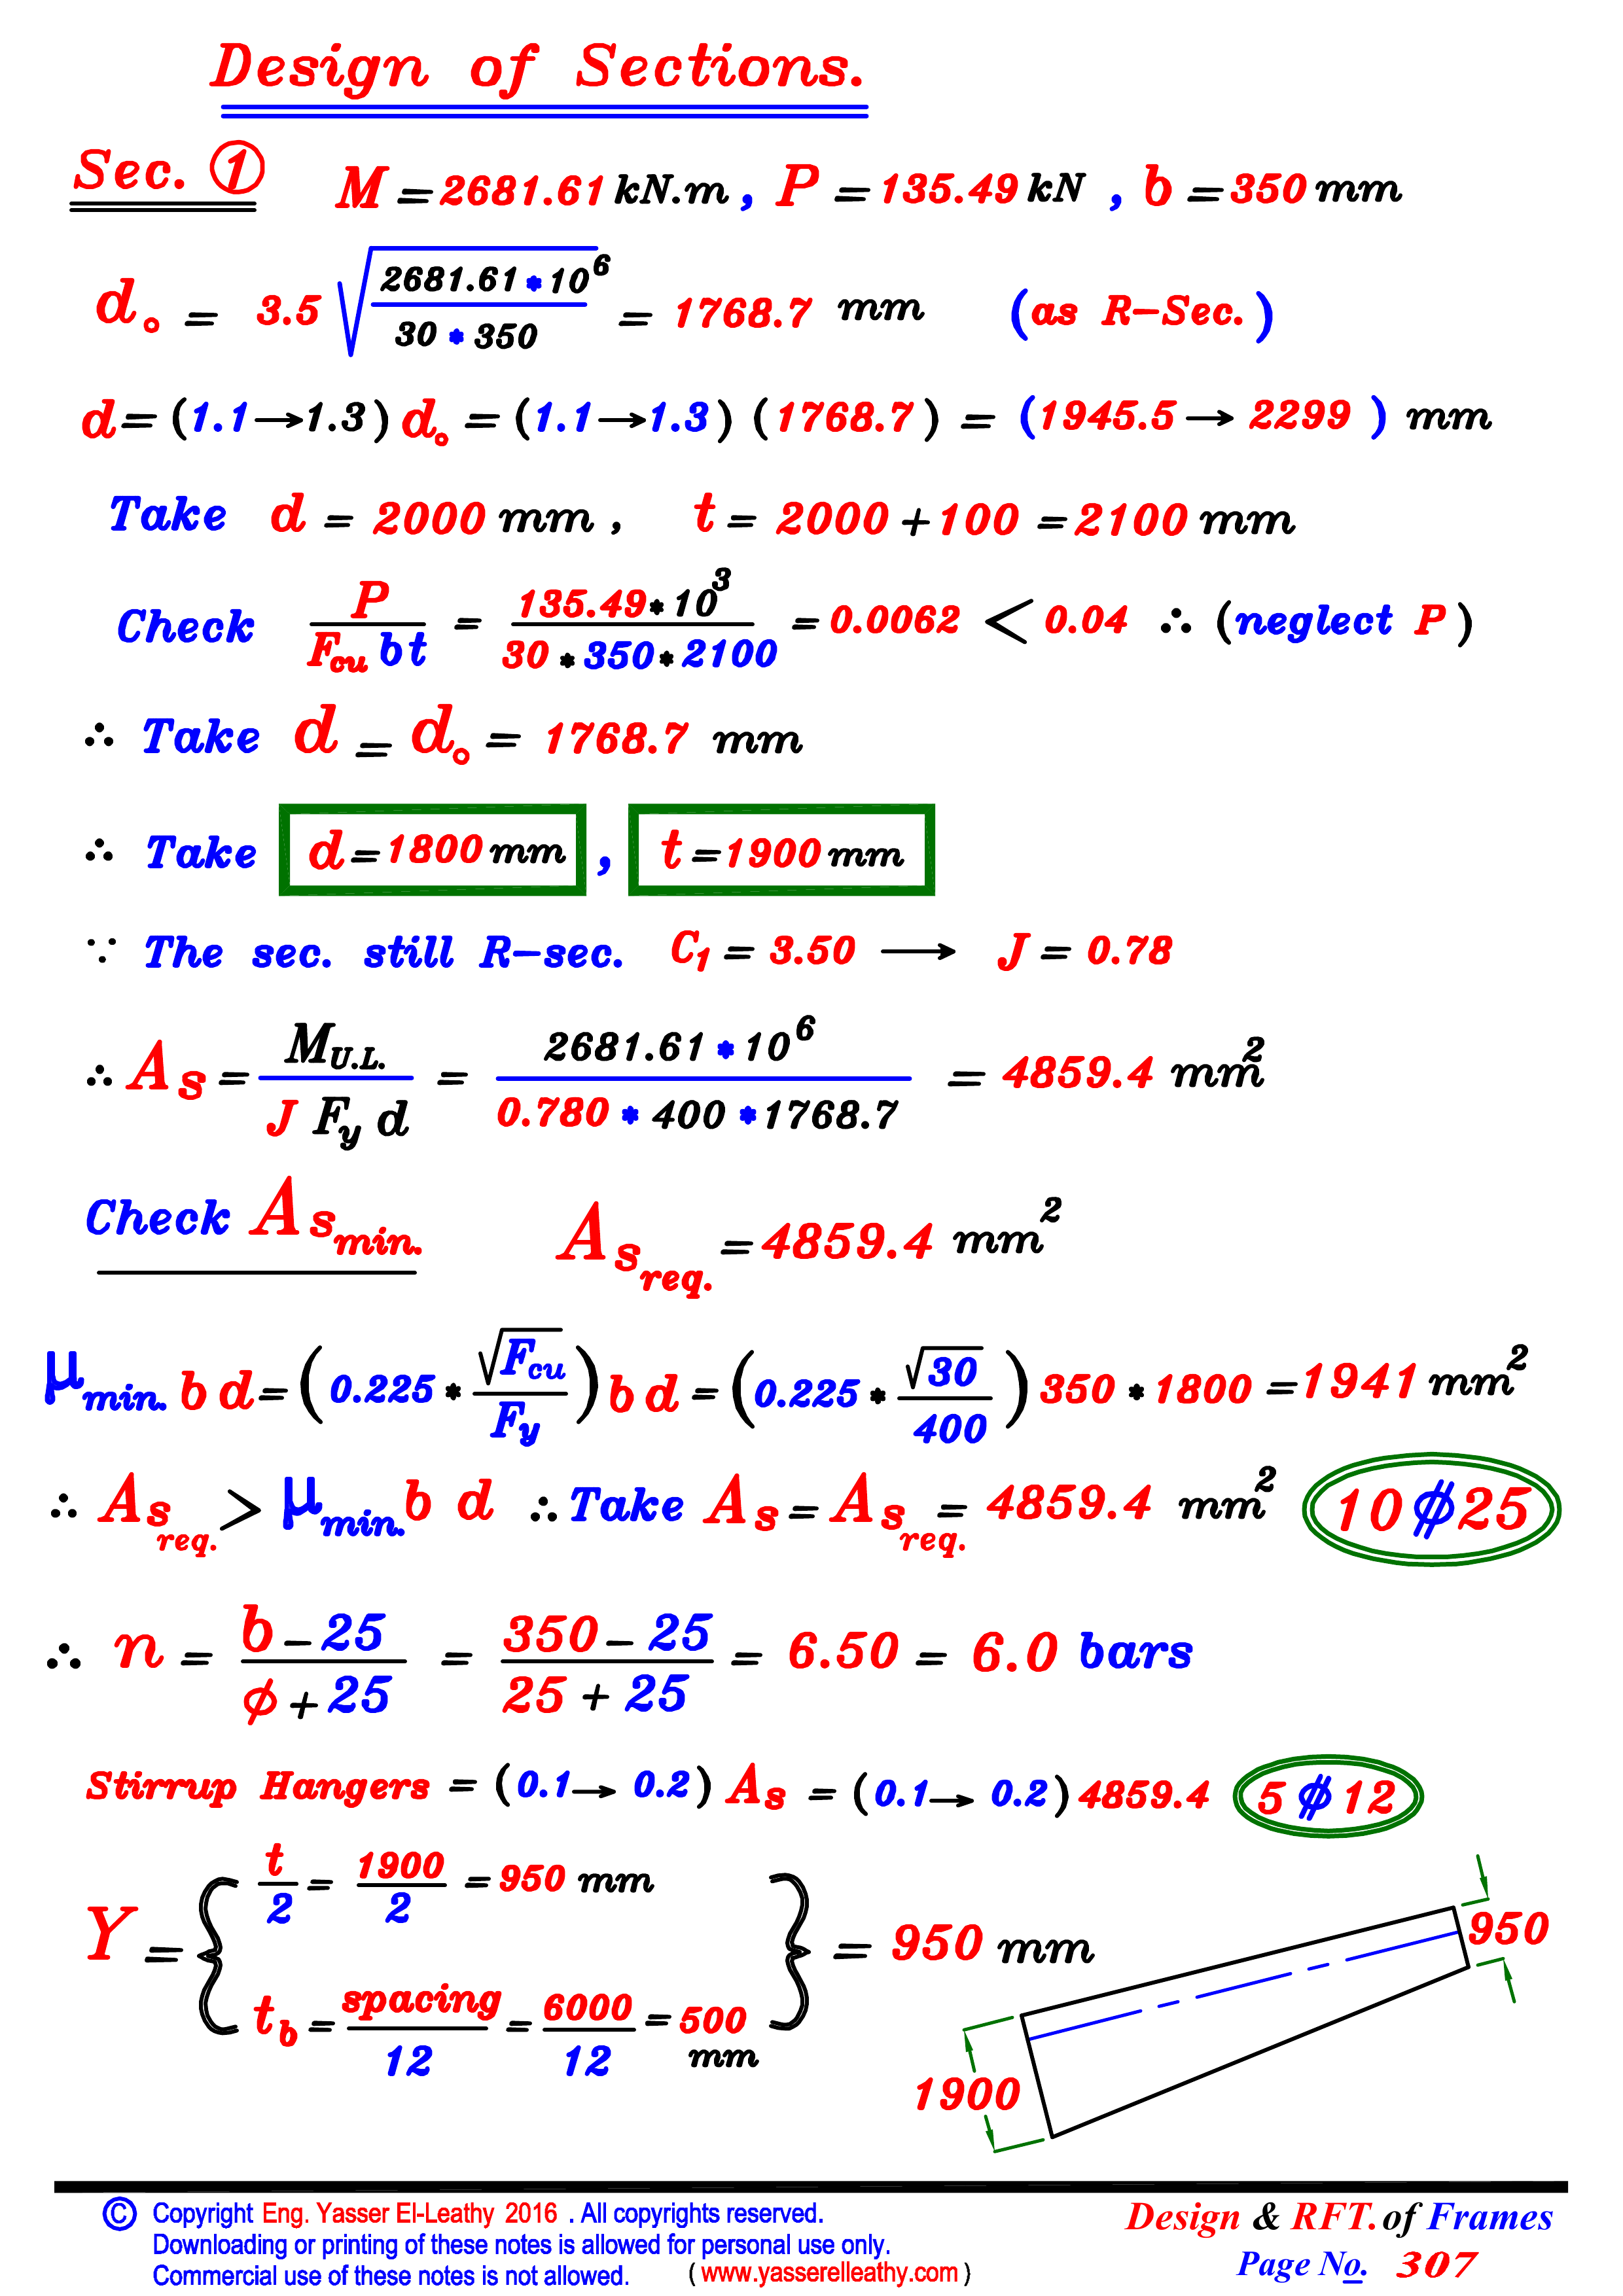 Design of Sections.
Sec. ① M = 2681.61 kN.m , P = 135.49 kN , b = 350 mm
d₀ = 3.5 √(2681.61 * 10⁶ / 30 * 350) = 1768.7 mm (as R-Sec.)
d = (1.1 → 1.3) d₀ = (1.1 → 1.3) (1768.7) = (1945.5 → 2299) mm
Take d = 2000 mm , t = 2000 + 100 = 2100 mm
Check P / F_cu b t = 135.49 * 10³ / 30 * 350 * 2100 = 0.0062 < 0.04 ∴ (neglect P)
∴ Take d = d₀ = 1768.7 mm
∴ Take d = 1800 mm , t = 1900 mm
∵ The sec. still R-sec. C₁ = 3.50 → J = 0.78
∴ A_s = M_U.L. / J F_y d = 2681.61 * 10⁶ / 0.780 * 400 * 1768.7 = 4859.4 mm²
Check A_s min. A_s req. = 4859.4 mm²
μ_min. b d = (0.225 * √F_cu / F_y) b d = (0.225 * √30 / 400) 350 * 1800 = 1941 mm²
∴ A_s req. > μ_min. b d ∴ Take A_s = A_s req. = 4859.4 mm² 10 ⌀ 25
∴ n = b - 25 / ϕ + 25 = 350 - 25 / 25 + 25 = 6.50 = 6.0 bars
Stirrup Hangers = (0.1 → 0.2) A_s = (0.1 → 0.2) 4859.4 5 ⌀ 12
Y = { t / 2 = 1900 / 2 = 950 mm
t_b = spacing / 12 = 6000 / 12 = 500 mm } = 950 mm
950
1900
© Copyright Eng. Yasser El-Leathy 2016 . All copyrights reserved.
Downloading or printing of these notes is allowed for personal use only.
Commercial use of these notes is not allowed. ( www.yasserelleathy.com )
Design & RFT. of Frames
Page No. 307